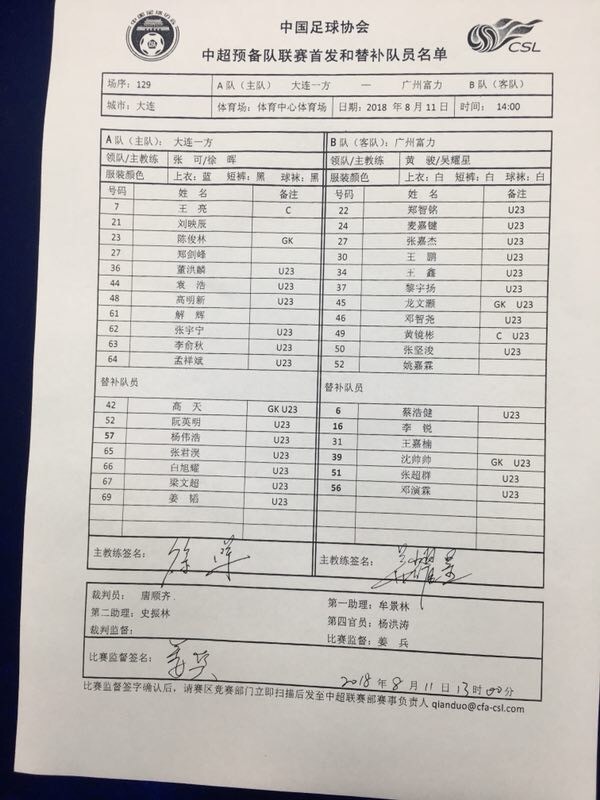 中国足球协会
中超预备队联赛首发和替补队员名单
CSL
场序: 129 A 队（主队） 大连一方 — 广州富力 B 队（客队）
城市: 大连 体育场: 体育中心体育场 日期: 2018 年 8 月 11 日 时间: 14:00
A 队（主队）: 大连一方 B 队（客队）: 广州富力
领队/主教练 张 可/徐 晖 领队/主教练 黄 骏/吴耀星
服装颜色 上衣: 蓝 短裤: 黑 球袜: 黑 服装颜色 上衣: 白 短裤: 白 球袜: 白
号码 姓 名 备注 号码 姓 名 备注
7 王 亮 C 22 郑智铭 U23
21 刘映辰 24 麦嘉健 U23
23 陈俊林 GK 27 张嘉杰 U23
27 郑剑峰 30 王 鹏 U23
36 董洪麟 U23 34 王 鑫 U23
44 袁 浩 U23 37 黎宇扬 U23
48 高明新 U23 45 龙文灏 GK U23
61 解 辉 46 邓智尧 U23
62 张宇宁 U23 49 黄镜彬 C U23
63 李俞秋 U23 50 张坚浚 U23
64 孟祥斌 U23 52 姚嘉霖
替补队员 替补队员
42 高 天 GK U23 6 蔡浩健 U23
52 阮英明 U23 16 李 锐
57 杨伟浩 U23 31 王嘉楠
65 张君濮 U23 39 沈帅帅 GK U23
66 白旭耀 U23 51 张超群 U23
67 梁文超 U23 56 邓演霖 U23
69 姜 韬 U23
主教练签名: 主教练签名: 吴耀星
裁判员: 唐顺齐. 第一助理: 牟景林
第二助理: 史振林 第四官员: 杨洪涛
裁判监督: 比赛监督: 姜 兵
比赛监督签名: 姜兵 2018 年 8 月 11 日 13 时 00 分
比赛监督签字确认后，请赛区竞赛部门立即扫描后发至中超联赛部赛事负责人 qianduo@cfa-csl.com